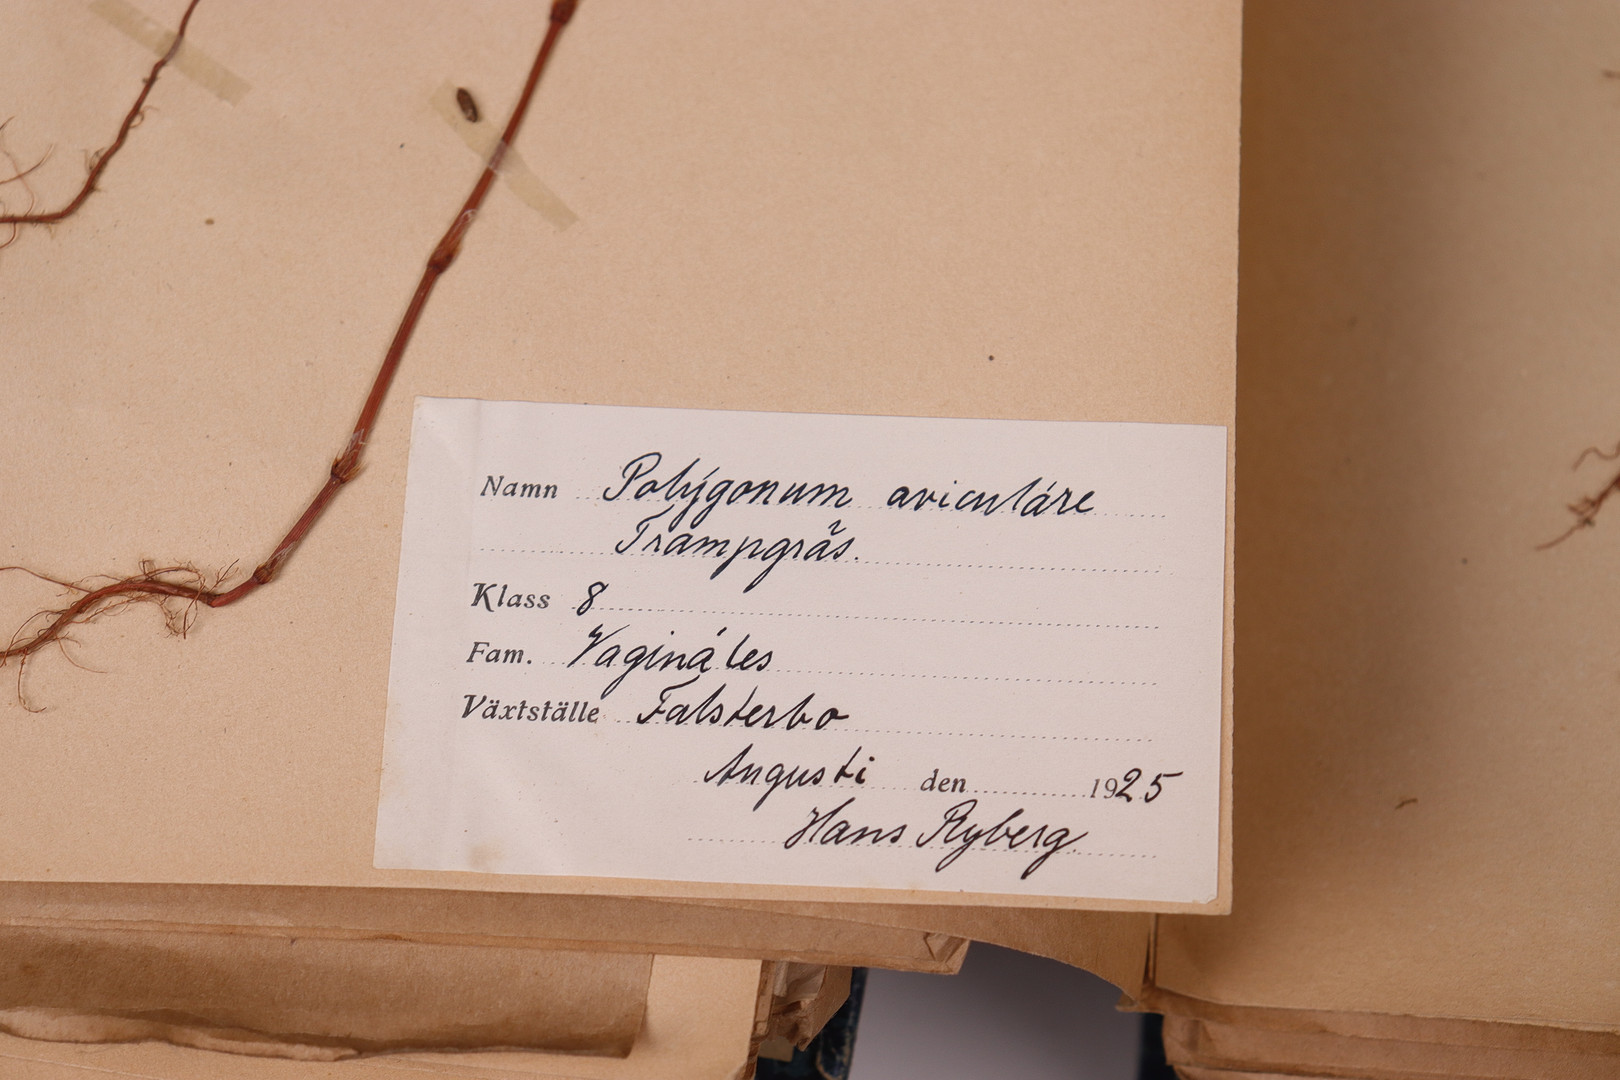 Namn Polýgonum aviculáre
Trampgräs.
Klass 8
Fam. Vagináles
Växtställe Falsterbo
Augusti den 1925
Hans Ryberg